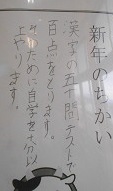 新年のちかい
漢字の五十問テストで
百点をとります。
そのために自学を十分以
上やります。